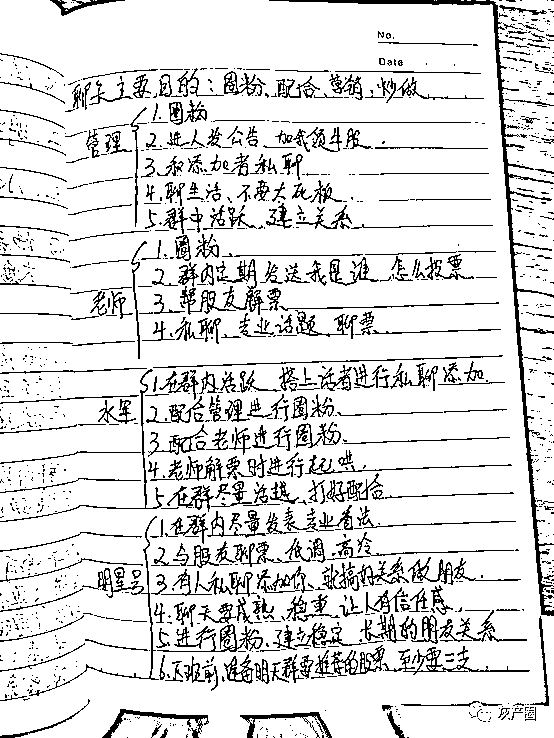 No.
Date
聊天主要目的：圈粉、配合、营销、炒做
管理
1. 圈粉
2. 进人发公告、加我领牛股.
3. 和添加者私聊
4. 聊生活、不要太死板、
5. 群中活跃、建立关系
老师
1. 圈粉、
2. 群内定期发送我是谁 怎么投票
3. 帮股友解票
4. 私聊、专业话题、聊票、
水军
1. 在群内活跃 搭上话者进行私聊添加
2. 配合管理进行圈粉、
3. 配合老师进行圈粉、
4. 老师解票时进行起哄、
5. 在群尽量活越、打好配合
明星号
1. 在群内尽量发表专业看法、
2. 与股友聊票、低调、高冷
3. 有人私聊添加你、就搞好关系做朋友、
4. 聊天要成熟、稳重、让人有信任感、
5. 进行圈粉、建立稳定 长期的朋友关系
6. 下班前、准备明天群要推荐的股票、至少要三支、
灰产圈